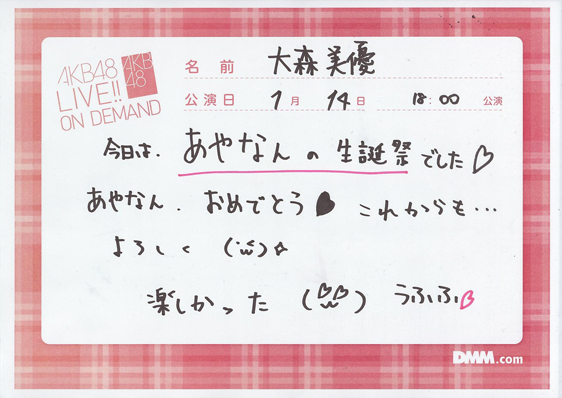 AKB48
LIVE!!
ON DEMAND
AKB
48
名前 大森美優
公演日 1月 14日 18:00 公演
今日は、あやなんの生誕祭でした♡
あやなん、おめでとう♥ これからも…
よろしく (¨ω)☆
楽しかった (♡ω♡) うふふ♡
DMM.com